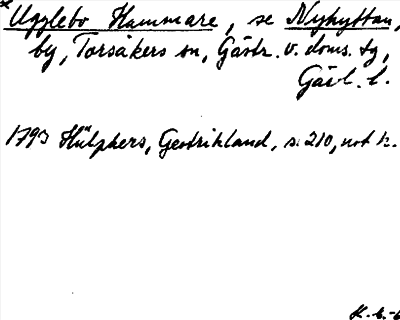 Ugglebo Hammare, se Nyhyttan,
by, Torsåkers sn, Gästr. v. doms. tg,
Gävl. l.
1793 Hülphers, Gestrikland, s. 210, not k.